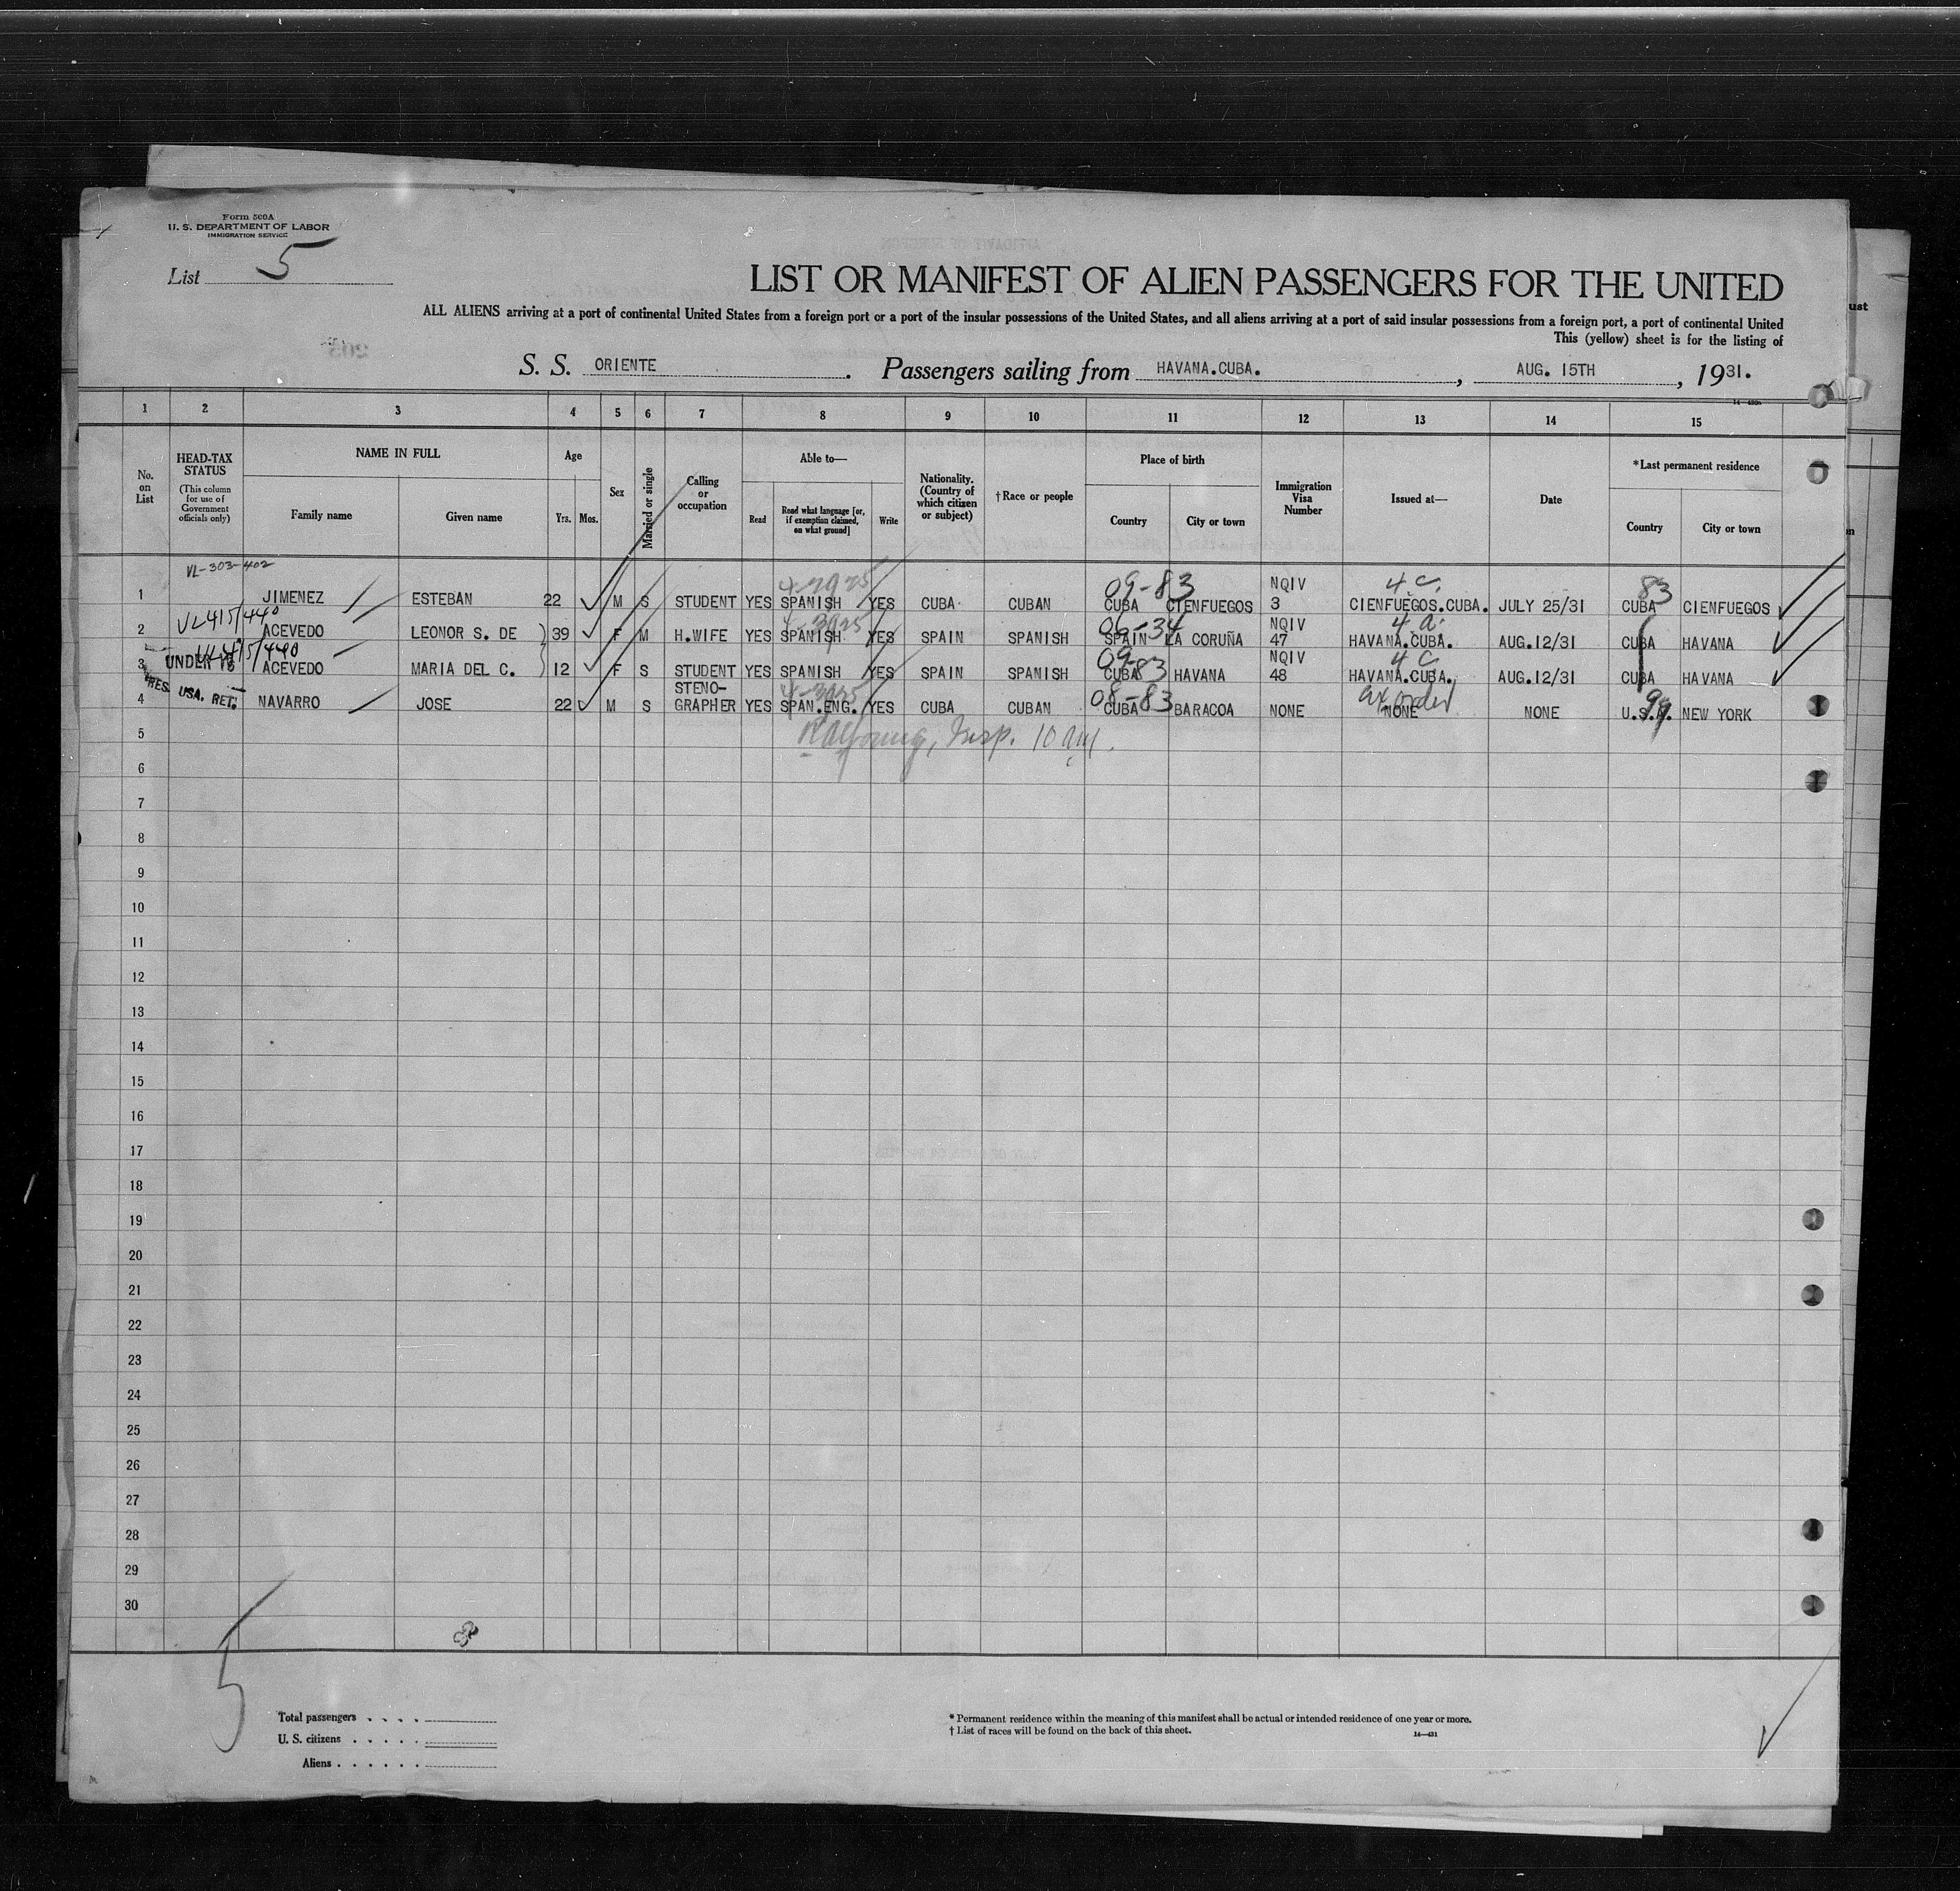 Form 500A
U. S. DEPARTMENT OF LABOR
IMMIGRATION SERVICE
List 5
LIST OR MANIFEST OF ALIEN PASSENGERS FOR THE UNITED
ALL ALIENS arriving at a port of continental United States from a foreign port or a port of the insular possessions of the United States, and all aliens arriving at a port of said insular possessions from a foreign port, a port of continental United
This (yellow) sheet is for the listing of
S. S. ORIENTE. Passengers sailing from HAVANA.CUBA., AUG. 15TH, 1931.
1 2 3 4 5 6 7 8 9 10 11 12 13 14 15
No. on List
HEAD-TAX STATUS (This column for use of Government officials only)
NAME IN FULL
Family name Given name
Age
Yrs. Mos.
Sex
Married or single
Calling or occupation
Able to—
Read Read what language [or, if exemption claimed, on what ground] Write
Nationality. (Country of which citizen or subject)
†Race or people
Place of birth
Country City or town
Immigration Visa Number
Issued at—
Date
*Last permanent residence
Country City or town
VL-303-402
4-2925 09-83 NQIV 4 c. 83
1 JIMENEZ ESTEBAN 22 M S STUDENT YES SPANISH YES CUBA CUBAN CUBA CIENFUEGOS 3 CIENFUEGOS.CUBA. JULY 25/31 CUBA CIENFUEGOS
VL415/440 06-34 NQIV 4 a.
2 ACEVEDO LEONOR S. DE 39 F M H.WIFE YES SPANISH YES SPAIN SPANISH SPAIN LA CORUÑA 47 HAVANA.CUBA. AUG.12/31 CUBA HAVANA
09-83 NQIV 4 C
3 UNDER 16 ACEVEDO MARIA DEL C. 12 F S STUDENT YES SPANISH YES SPAIN SPANISH CUBA HAVANA 48 HAVANA.CUBA. AUG.12/31 CUBA HAVANA
RES. USA. RET. 08-83 99
4 NAVARRO JOSE 22 M S STENO-GRAPHER YES SPAN.ENG. YES CUBA CUBAN CUBA BARACOA NONE NONE NONE U.S.A. NEW YORK
5
6
7
8
9
10
11
12
13
14
15
16
17
18
19
20
21
22
23
24
25
26
27
28
29
30
5
Total passengers
U. S. citizens
Aliens
* Permanent residence within the meaning of this manifest shall be actual or intended residence of one year or more.
† List of races will be found on the back of this sheet.
14—431